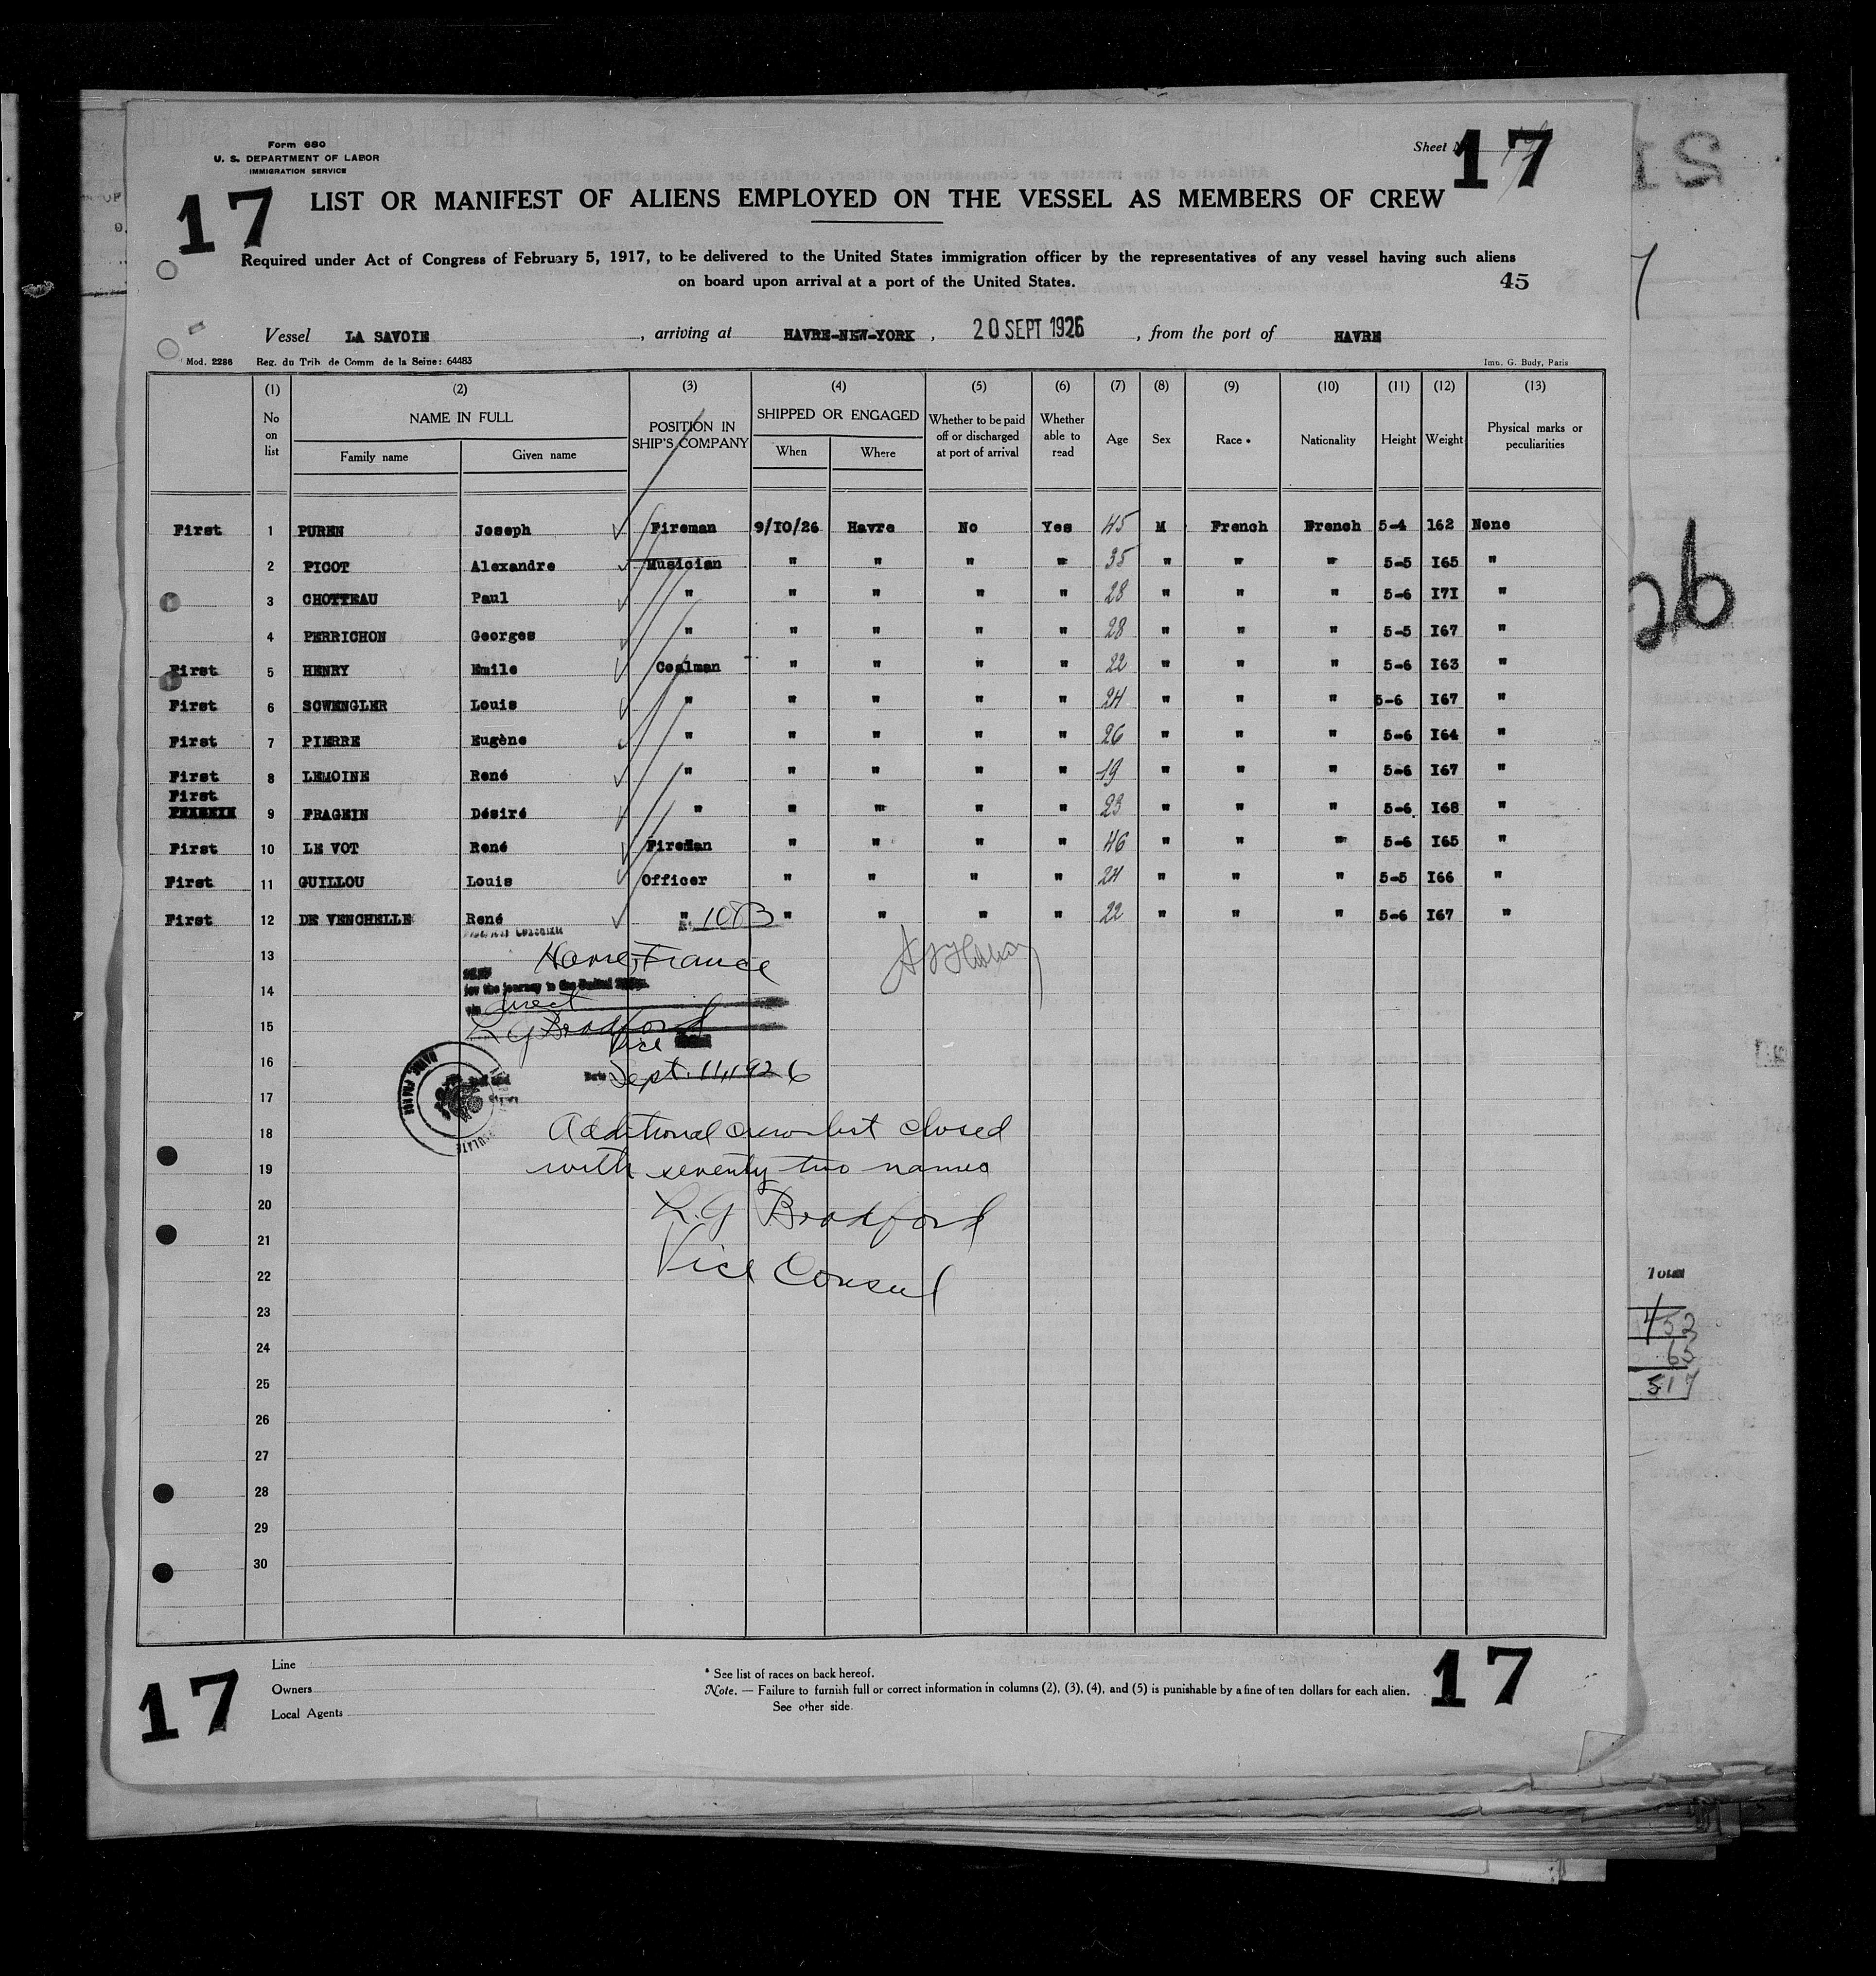 Form 680
U. S. DEPARTMENT OF LABOR
IMMIGRATION SERVICE
Sheet
17
17
LIST OR MANIFEST OF ALIENS EMPLOYED ON THE VESSEL AS MEMBERS OF CREW
Required under Act of Congress of February 5, 1917, to be delivered to the United States immigration officer by the representatives of any vessel having such aliens
on board upon arrival at a port of the United States.
45
Vessel LA SAVOIE , arriving at HAVRE-NEW-YORK , 20 SEPT 1926 , from the port of HAVRE
Mod. 2286 Reg. du Trib. de Comm de la Seine: 64483 Imp. G. Body, Paris
(1) (2) (3) (4) (5) (6) (7) (8) (9) (10) (11) (12) (13)
No on list NAME IN FULL Family name Given name POSITION IN SHIP'S COMPANY SHIPPED OR ENGAGED When Where Whether to be paid off or discharged at port of arrival Whether able to read Age Sex Race * Nationality Height Weight Physical marks or peculiarities
First 1 PUREN Joseph Fireman 9/10/26 Havre No Yes 45 M French French 5-4 162 None
2 PICOT Alexandre Musician " " " " 35 " " " 5-5 I65 "
3 CHOTTEAU Paul " " " " " 28 " " " 5-6 I7I "
4 PERRICHON Georges " " " " " 28 " " " 5-5 I67 "
First 5 HENRY Emile Coalman " " " " 22 " " " 5-6 I63 "
First 6 SCWENGLER Louis " " " " " 24 " " " 5-6 I67 "
First 7 PIERRE Eugène " " " " " 26 " " " 5-6 I64 "
First 8 LEMOINE René " " " " " 19 " " " 5-6 I67 "
First
9 FRAGEIN Désiré " " " " " 23 " " " 5-6 I68 "
First 10 LE VOT René FireMan " " " " 46 " " " 5-6 I65 "
First 11 GUILLOU Louis Officer " " " " 24 " " " 5-5 I66 "
First 12 DE VENCHELLE René " 1083 " " " " 22 " " " 5-6 I67 "
13 Havre, France
14 for the journey to the United States
via direct
15 L G Bradford
Vice
16 Date Sept. 11, 1926
17
18 Additional crew list closed
19 with seventy two names
20 L. G Bradford
21
22 Vice Consul
23
24
25
26
27
28
29
30
Line
Owners
Local Agents
* See list of races on back hereof.
Note. — Failure to furnish full or correct information in columns (2), (3), (4), and (5) is punishable by a fine of ten dollars for each alien.
See other side.
17
17
26
Total
452
65
517